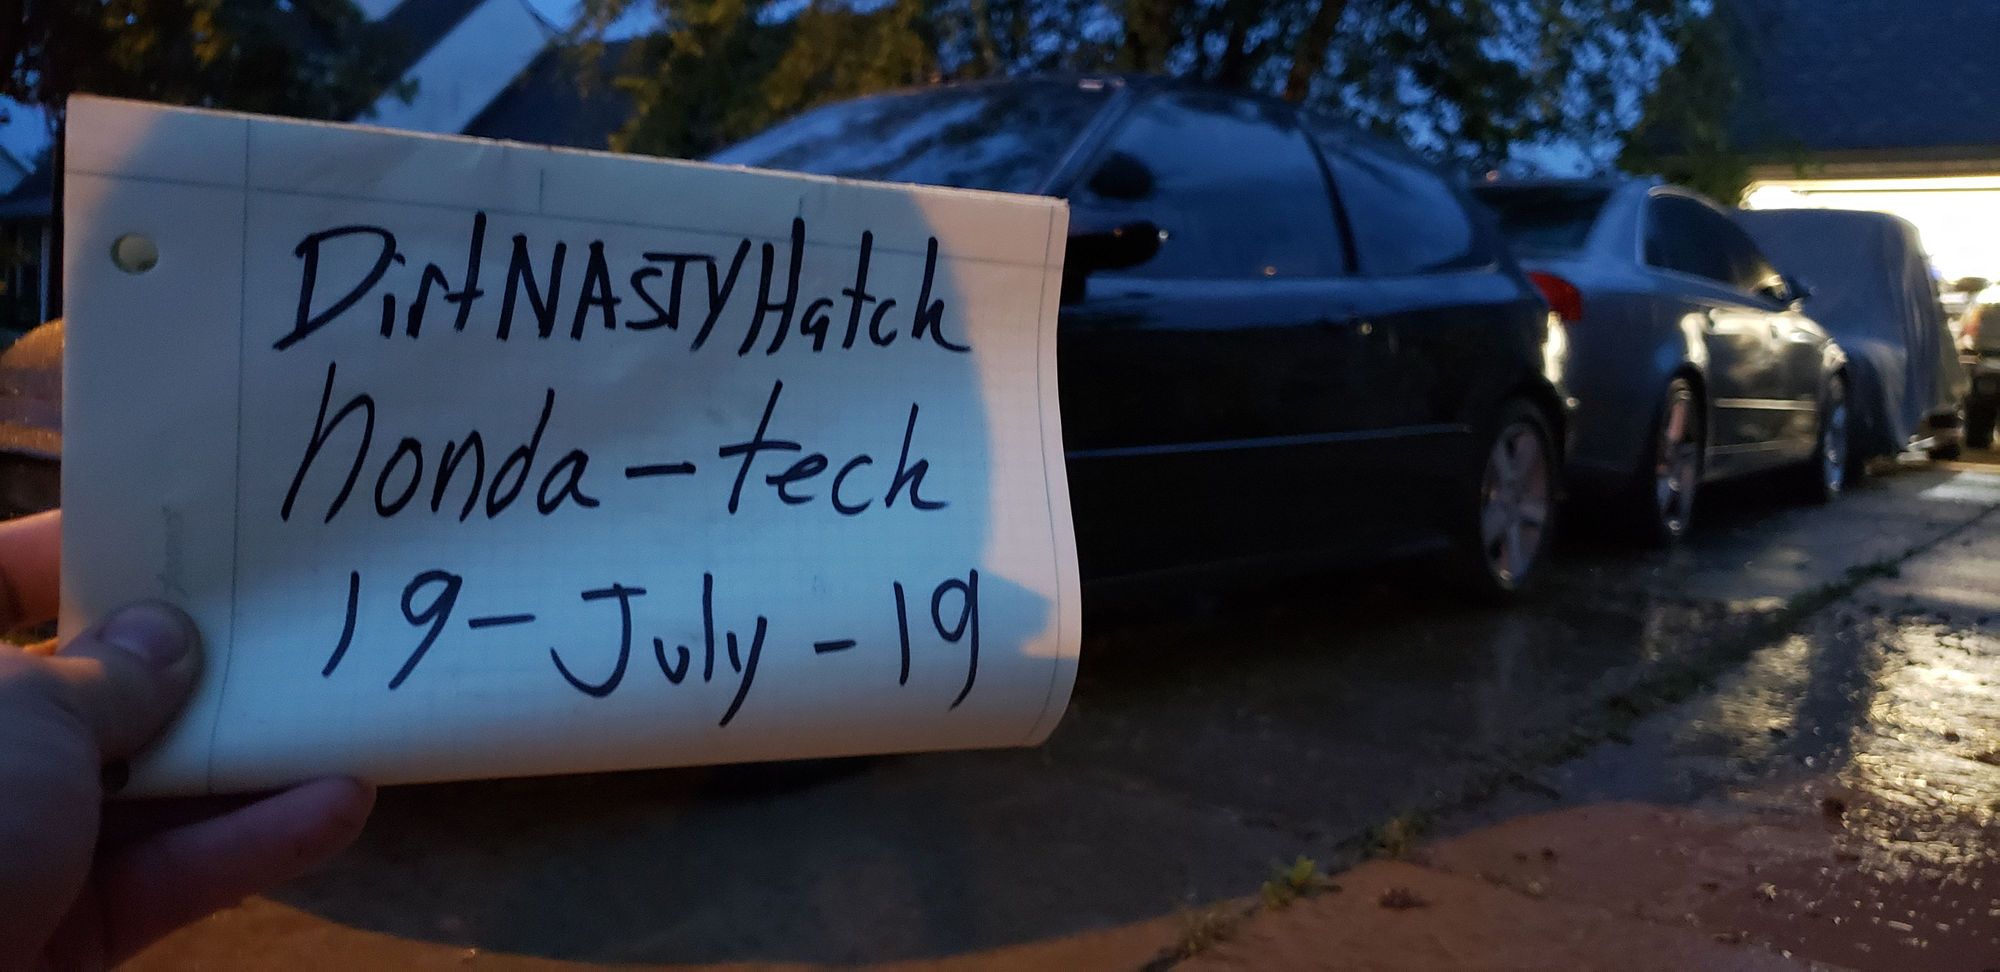 DirtNASTYHatch
honda-tech
19-July-19